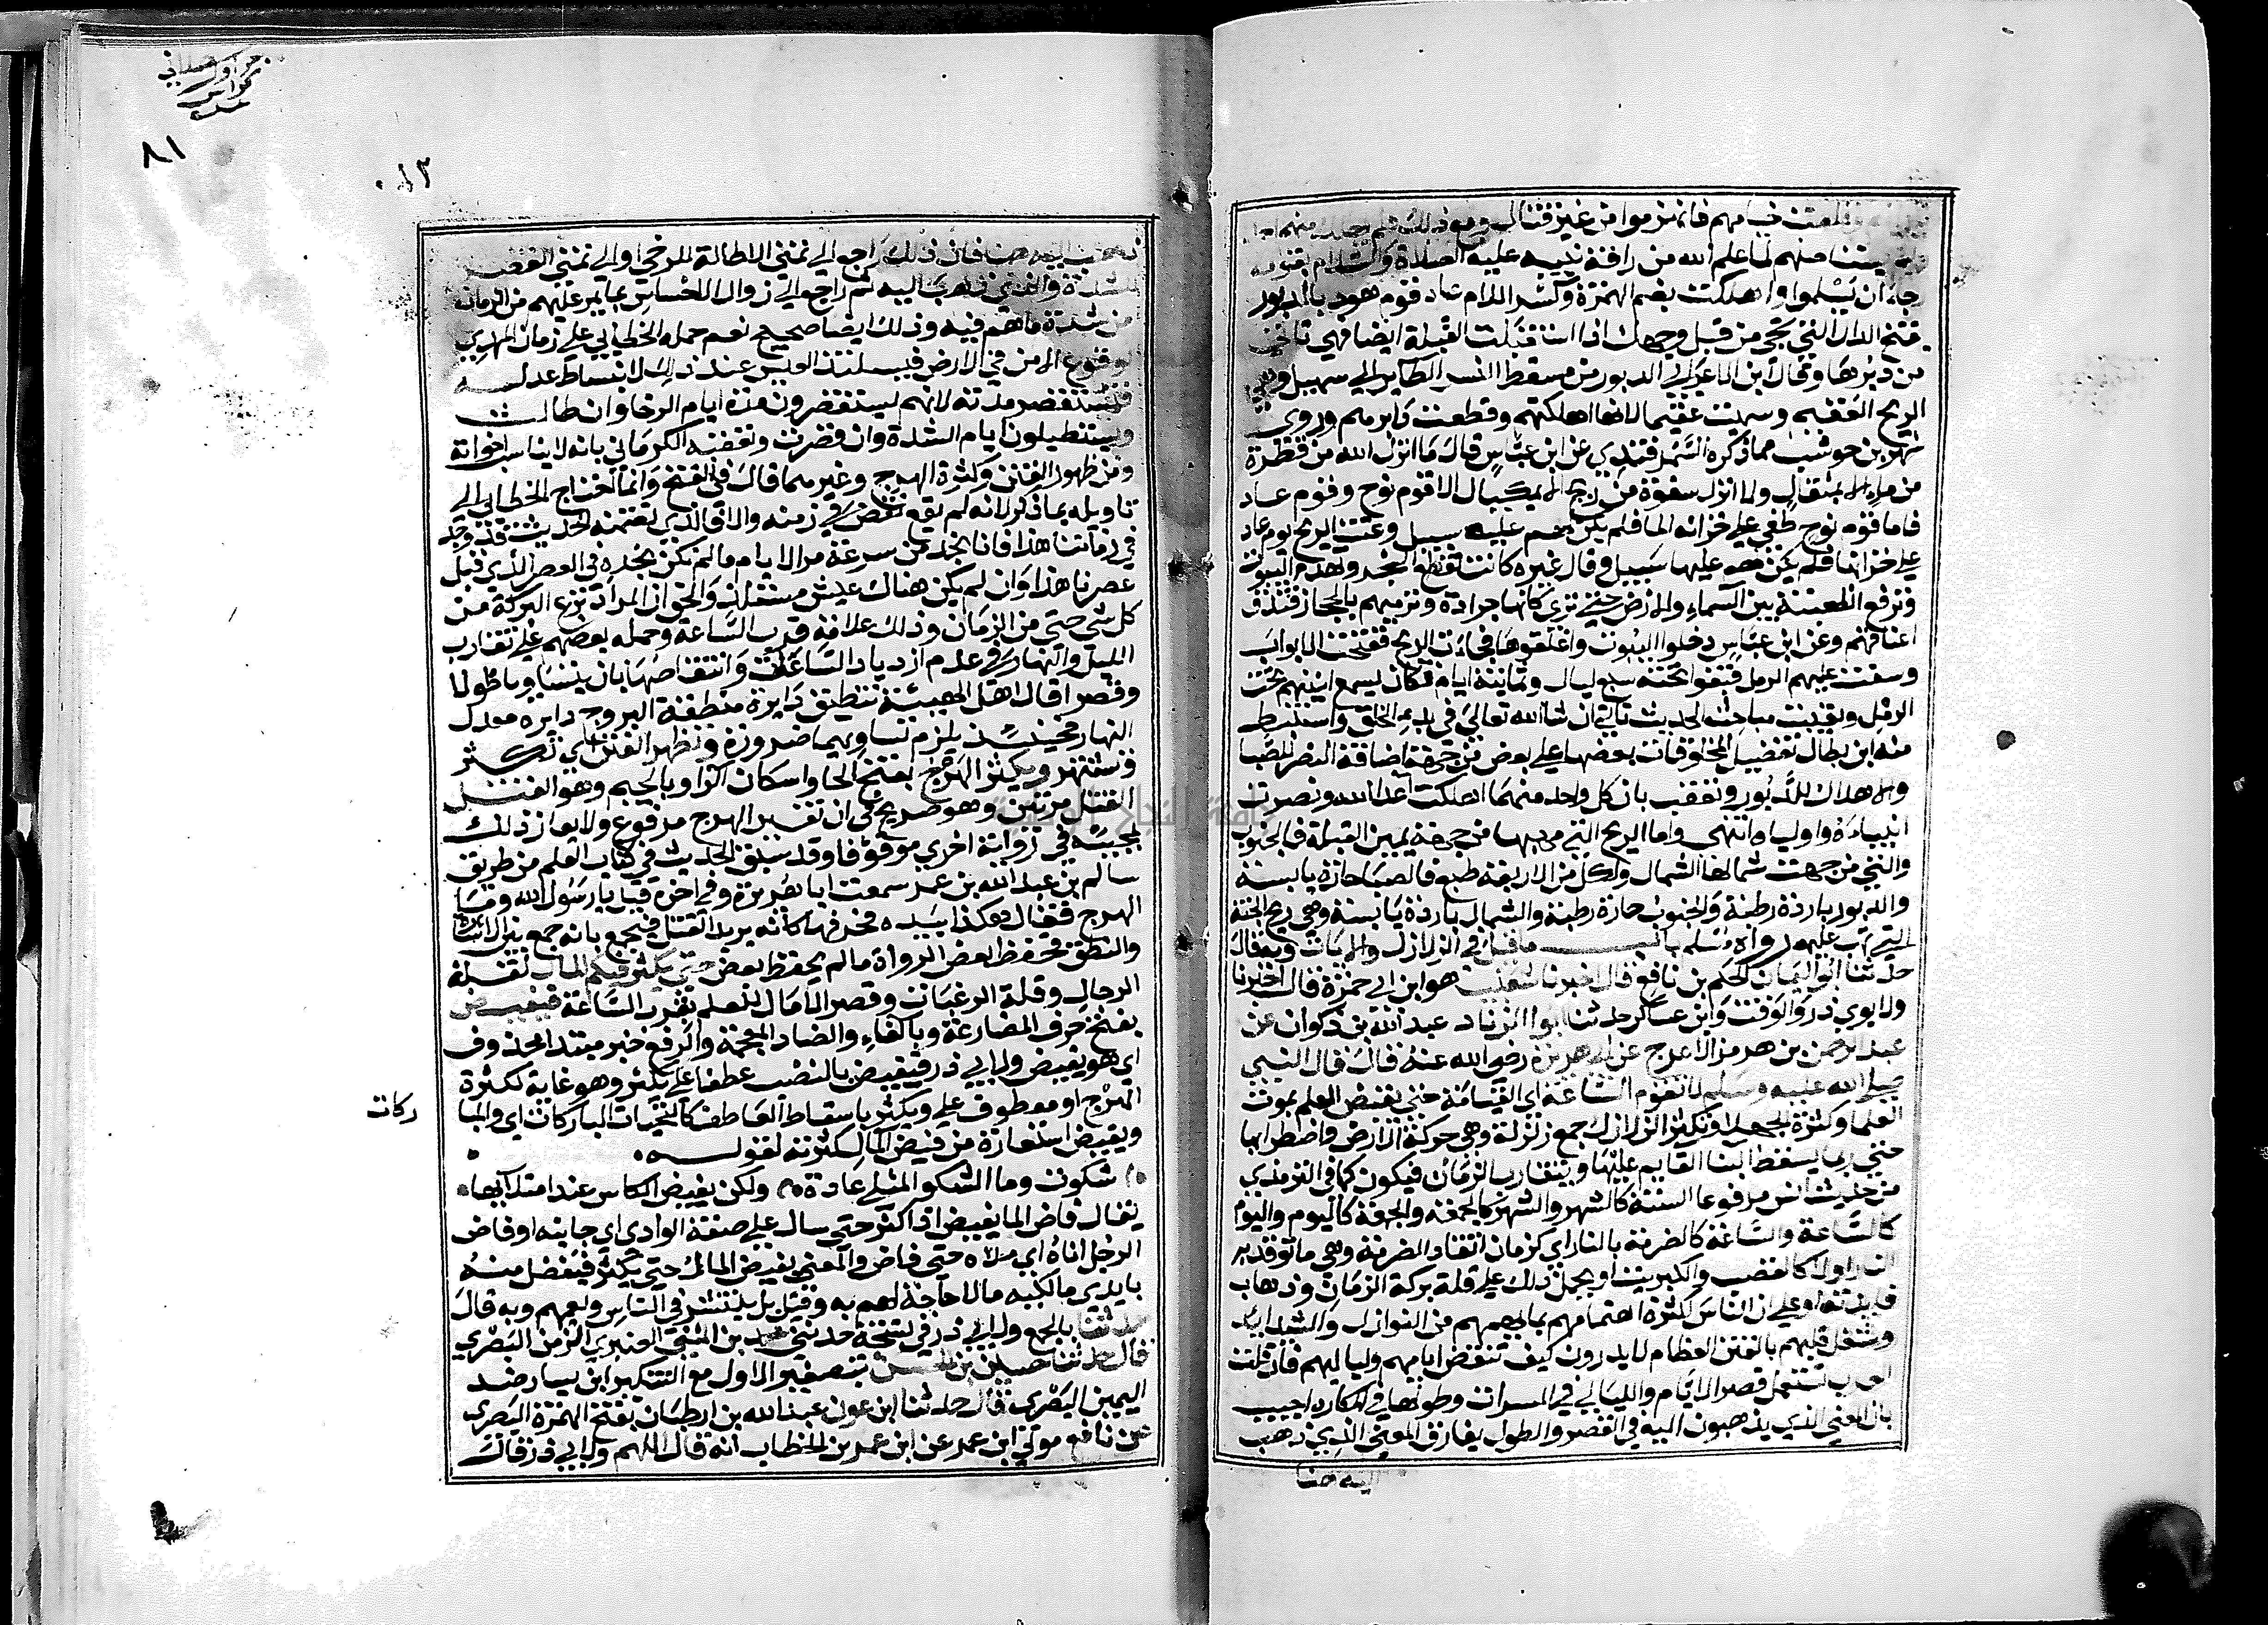 خيامهم فانهزموا من غير قتال ومع ذلك فلم يهلك منهم احد
ولم يستأصلهم لما علم الله من رافة نبيه عليه الصلاة والسلام بقومه
رجاء ان يسلموا واهلكت بضم الهمزة وكسر اللام عاد قوم هود بالدبور
بفتح الدال التي تجي من قبل وجهك اذا استقبلت القبلة ايضا فهي تاتي
من دبرها وقال ابن الاعرابي الدبور من مسقط النسر الطاير الي سهيل وهي
الريح العقيم وسميت عقيما لانها اهلكتهم وقطعت دابرهم وروي
شهر بن حوشب مما ذكره السمرقندي عن ابن عباس قال ما انزل الله من قطرة
من ماء الا بمثقال ولا انزل سفوة من ريح الا بمكيال الا قوم نوح وقوم عاد
فاما قوم نوح طغي علي خزانه الما فلم يكن لهم عليه سبيل وعتت الريح يوم عاد
علي خزانها فلم يكن لهم عليها سبيل وقال غيره كانت تقلع الشجر وتهدم البيوت
وترفع الظعينة بين السماء والارض حتي تري كانها جرادة وترميهم بالحجارة فتدق
اعناقهم وعن ابن عباس دخلوا البيوت واغلقوها فجاءت الريح ففتحت الابواب
وسفت عليهم الرمل فبقوا تحته سبع ليال وثمانية ايام فكان يسمع انينهم تحت
الرمل وبقيت مباحث الحديث تاتي ان شا الله تعالي في بدء الخلق واستنبط
منه ابن بطال تفضيل المخلوقات بعضها علي بعض من جهة اضافة النصر للصبا
والاهلاك للدبور وتعقب بان كل واحد منهما اهلكت اعدا الله ونصرت
انبياءه واولياه انتهي واما الريح التي مهبها من جهة يمين القبلة فالجنوب
والتي من جهت شمالها الشمال ولكل من الاربعة طبع فالصبا حارة يابسة
والدبور باردة رطبة والجنوب حارة رطبة والشمال باردة يابسة وهي ريح الجنة
التي تهب عليهم رواه مسلم باب ما قيل في الزلازل والايات وبه قال
حدثنا ابو اليمان الحكم بن نافع قال اخبرنا شعيب هو ابن ابي حمزة قال اخبرنا
ولابوي ذر والوقت وابن عساكر حدثنا ابو الزناد عبد الله بن ذكوان عن
عبد الرحمن بن هرمز الاعرج عن ابي هريرة رضي الله عنه قال قال النبي
صلي الله عليه وسلم لا تقوم الساعة اي القيامة حتي يقبض العلم بموت
العلما وكثرة الجهلا وتكثر الزلازل جمع زلزلة وهي حركة الارض واضطرابها
حتي ربما يسقط البنا القايم عليها ويتقارب الزمان فيكون كما في الترمذي
من حديث انس مرفوعا السنة كالشهر والشهر كالجمعة والجمعة كاليوم واليوم
كالساعة والساعة كالضرمة بالنار اي كزمان اتقاد الضرمة وهي ما توقد به
النار اولا كالقصب والكبريت او يحمل ذلك علي قلة بركة الزمان وذهاب
فايدته او علي ان الناس لكثرة اهتمامهم بما دهمهم من النوازل والشدايد
وشغل قلبهم بالفتن العظام لا يدرون كيف تنقضي ايامهم ولياليهم فان قلت
العرب تستعمل قصر الايام والليالي في المسرات وطولها في المكاره اجيب
بان المعني الذي يذهبون اليه في القصر والطول يفارق المعني الذي ذهب
اليه هنا
جز اول
٨١
ذهب اليه هنا فان ذلك راجع الي تمني الاطالة للرخي او الي تمني القصر
للشدة والذي ذهب اليه ثم راجع الي زوال الاحساس بما يمر عليهم من الزمان
من شدة ما هم فيه وذلك ايضا صحيح نعم حمله الخطابي علي زمان المهدي
لوقوع الامن في الارض فيستلذ العيش عند ذلك لانبساط عدله
فتستقصر مدته لانهم يستقصرون مدة ايام الرخا وان طالت
ويستطيلون ايام الشدة وان قصرت وتعقبه الكرماني بانه لا يناسب اخواته
ومن ظهور الفتن وكثرة الهرج وغيرهما قال في الفتح وانما احتاج الخطابي الي
تاويله بما ذكر لانه لم يقع نقص في زمنه والا فالذي تضمنه الحديث قد وجد
في زماننا هذا فانا نجد من سرعة مر الايام ما لم نكن نجده في العصر الذي قبل
عصرنا هذا وان لم يكن هناك عيش مستلذ والحق ان المراد نزع البركة من
كل شي حتي من الزمان وذلك علامة قرب الساعة وحمله بعضهم علي تقارب
الليل والنهار في عدم ازدياد الساعات وانتقاصها بان يتساويا طولا
وقصرا قال اهل الهيئة تنطبق دايرة منطقة البروج دايره معدل
النهار فحينئذ يلزم تساويهما ضرورة وتظهر الفتن اي تكثر
وتشتهر ويكثر الهرج بفتح الها واسكان الرا وبالجيم وهو القتل
القتل مرتين وهو صريح في ان تفسير الهرج مرفوع ولا يعارض ذلك
مجيئه في رواية اخري موقوفا وقد سبق الحديث في كتاب العلم من طريق
سالم بن عبد الله بن عمر سمعت ابا هريرة وفي اخره قيل يا رسول الله وما
الهرج فقال هكذا بيده فحرفها كأنه يريد القتل فيجمع بانه جمع بين الاشارة
والنطق فحفظ بعض الرواة ما لم يحفظ بعض حتي يكثر فيكم المال لقلة
الرجال وقلة الرغبات وقصر الامال للعلم بقرب الساعة فيفيض
بفتح حرف المضارعة وبالفاء والضاد المعجمة والرفع خبر مبتدا محذوف
اي هو يفيض ولابي ذر فيفيض بالنصب عطفا علي يكثر وهو غاية لكثرة
الهرج او معطوف علي ويكثر باسقاط العاطف كالتحيات المباركات اي والمبا
ركات
ويفيض استعارة من فيض الما لكثرته لقوله
شكوت وما الشكو المثلي عادة ولكن يفيض الكاس عند امتلآئها
يقال فاض الما يفيض اذا كثر حتي سال علي صفة الوادي اي جانبه وافاض
الرجل اناه اي ملاه حتي فاض والمعني يفيض المال حتي يكثر فيفضل منه
بايدي مالكيه مالا حاجة لهم به وقيل بل ينتشر في الناس ويعمهم وبه قال
حدثنا بالجمع ولابي ذر في نسخة حدثني محمد بن المثني العنبري الزمن البصري
قال حدثنا حسين بن الحسن بتصغير الاول مع التنكير ابن يسار ضد
اليمين البصري قال حدثنا ابن عون عبد الله بن ارطبان بفتح الهمزة البصري
عن نافع مولي ابن عمر عن ابن عمر بن الخطاب انه قال اللهم ولابي ذر قال
جامعة النجاح الوطنية